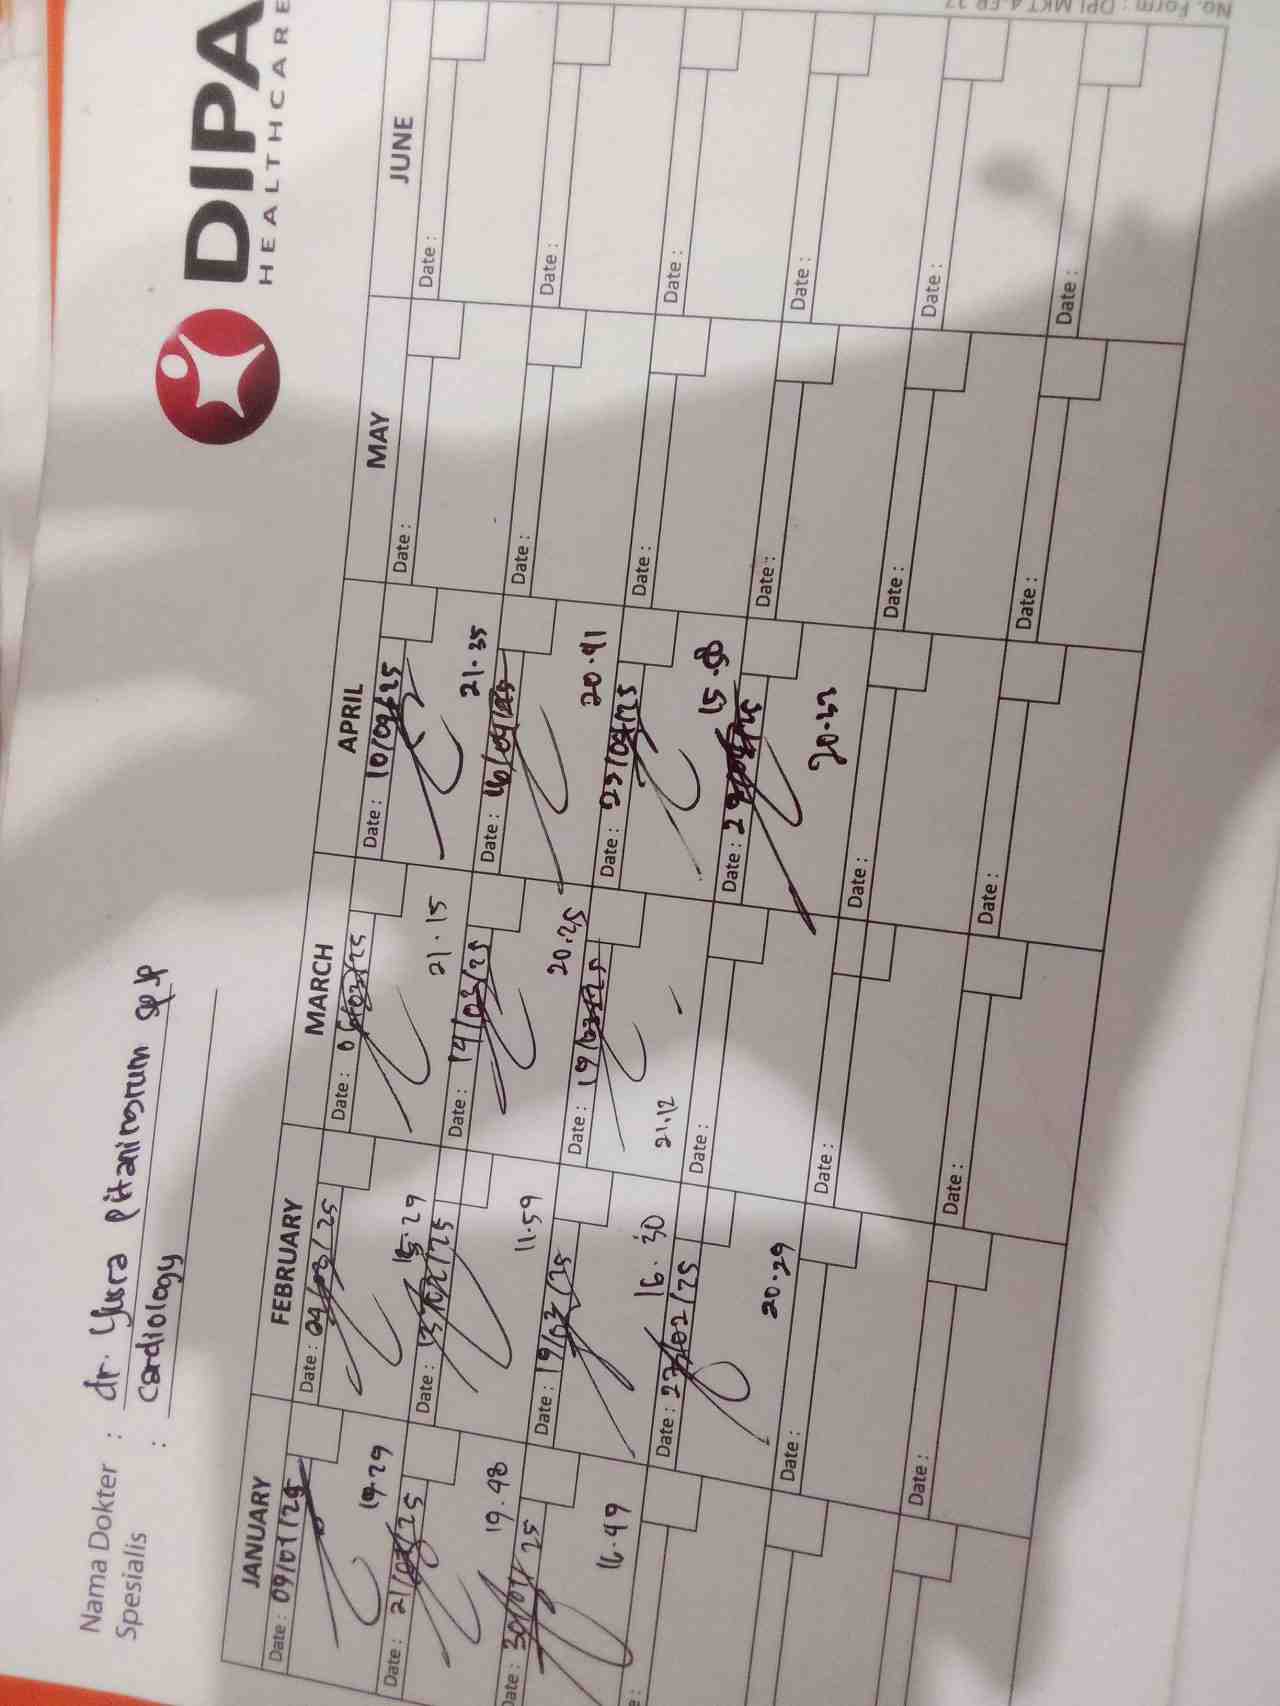 No. Form : DPI.MKT.4.FR.
DIPA
HEALTHCARE
Nama Dokter : dr. Yusra Pitaningrum Sp JP
Spesialis : Cardiology
JANUARY FEBRUARY MARCH APRIL MAY JUNE
Date : 09/01/25 Date : 04/02/25 Date : 06/03/25 Date : 10/04/25 Date : Date :
19.29 15.29 21.15 21.35
Date : 21/01/25 Date : 13/02/25 Date : 14/03/25 Date : 16/04/25 Date : Date :
19.48 11.59 20.25 20.41
Date : 30/01/25 Date : 19/02/25 Date : 19/03/25 Date : 23/04/25 Date : Date :
16.49 16.30 21.12 15.58
Date : 27/02/25 Date : Date : 29/04/25 Date : Date :
20.29 20.32
Date : Date : Date : Date : Date :
Date : Date : Date : Date : Date :